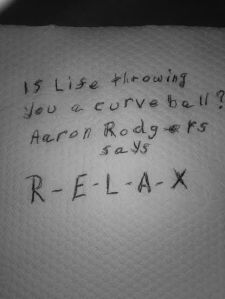 Is Life throwing
you a curve ball?
Aaron Rodgers
says
R-E-L-A-X